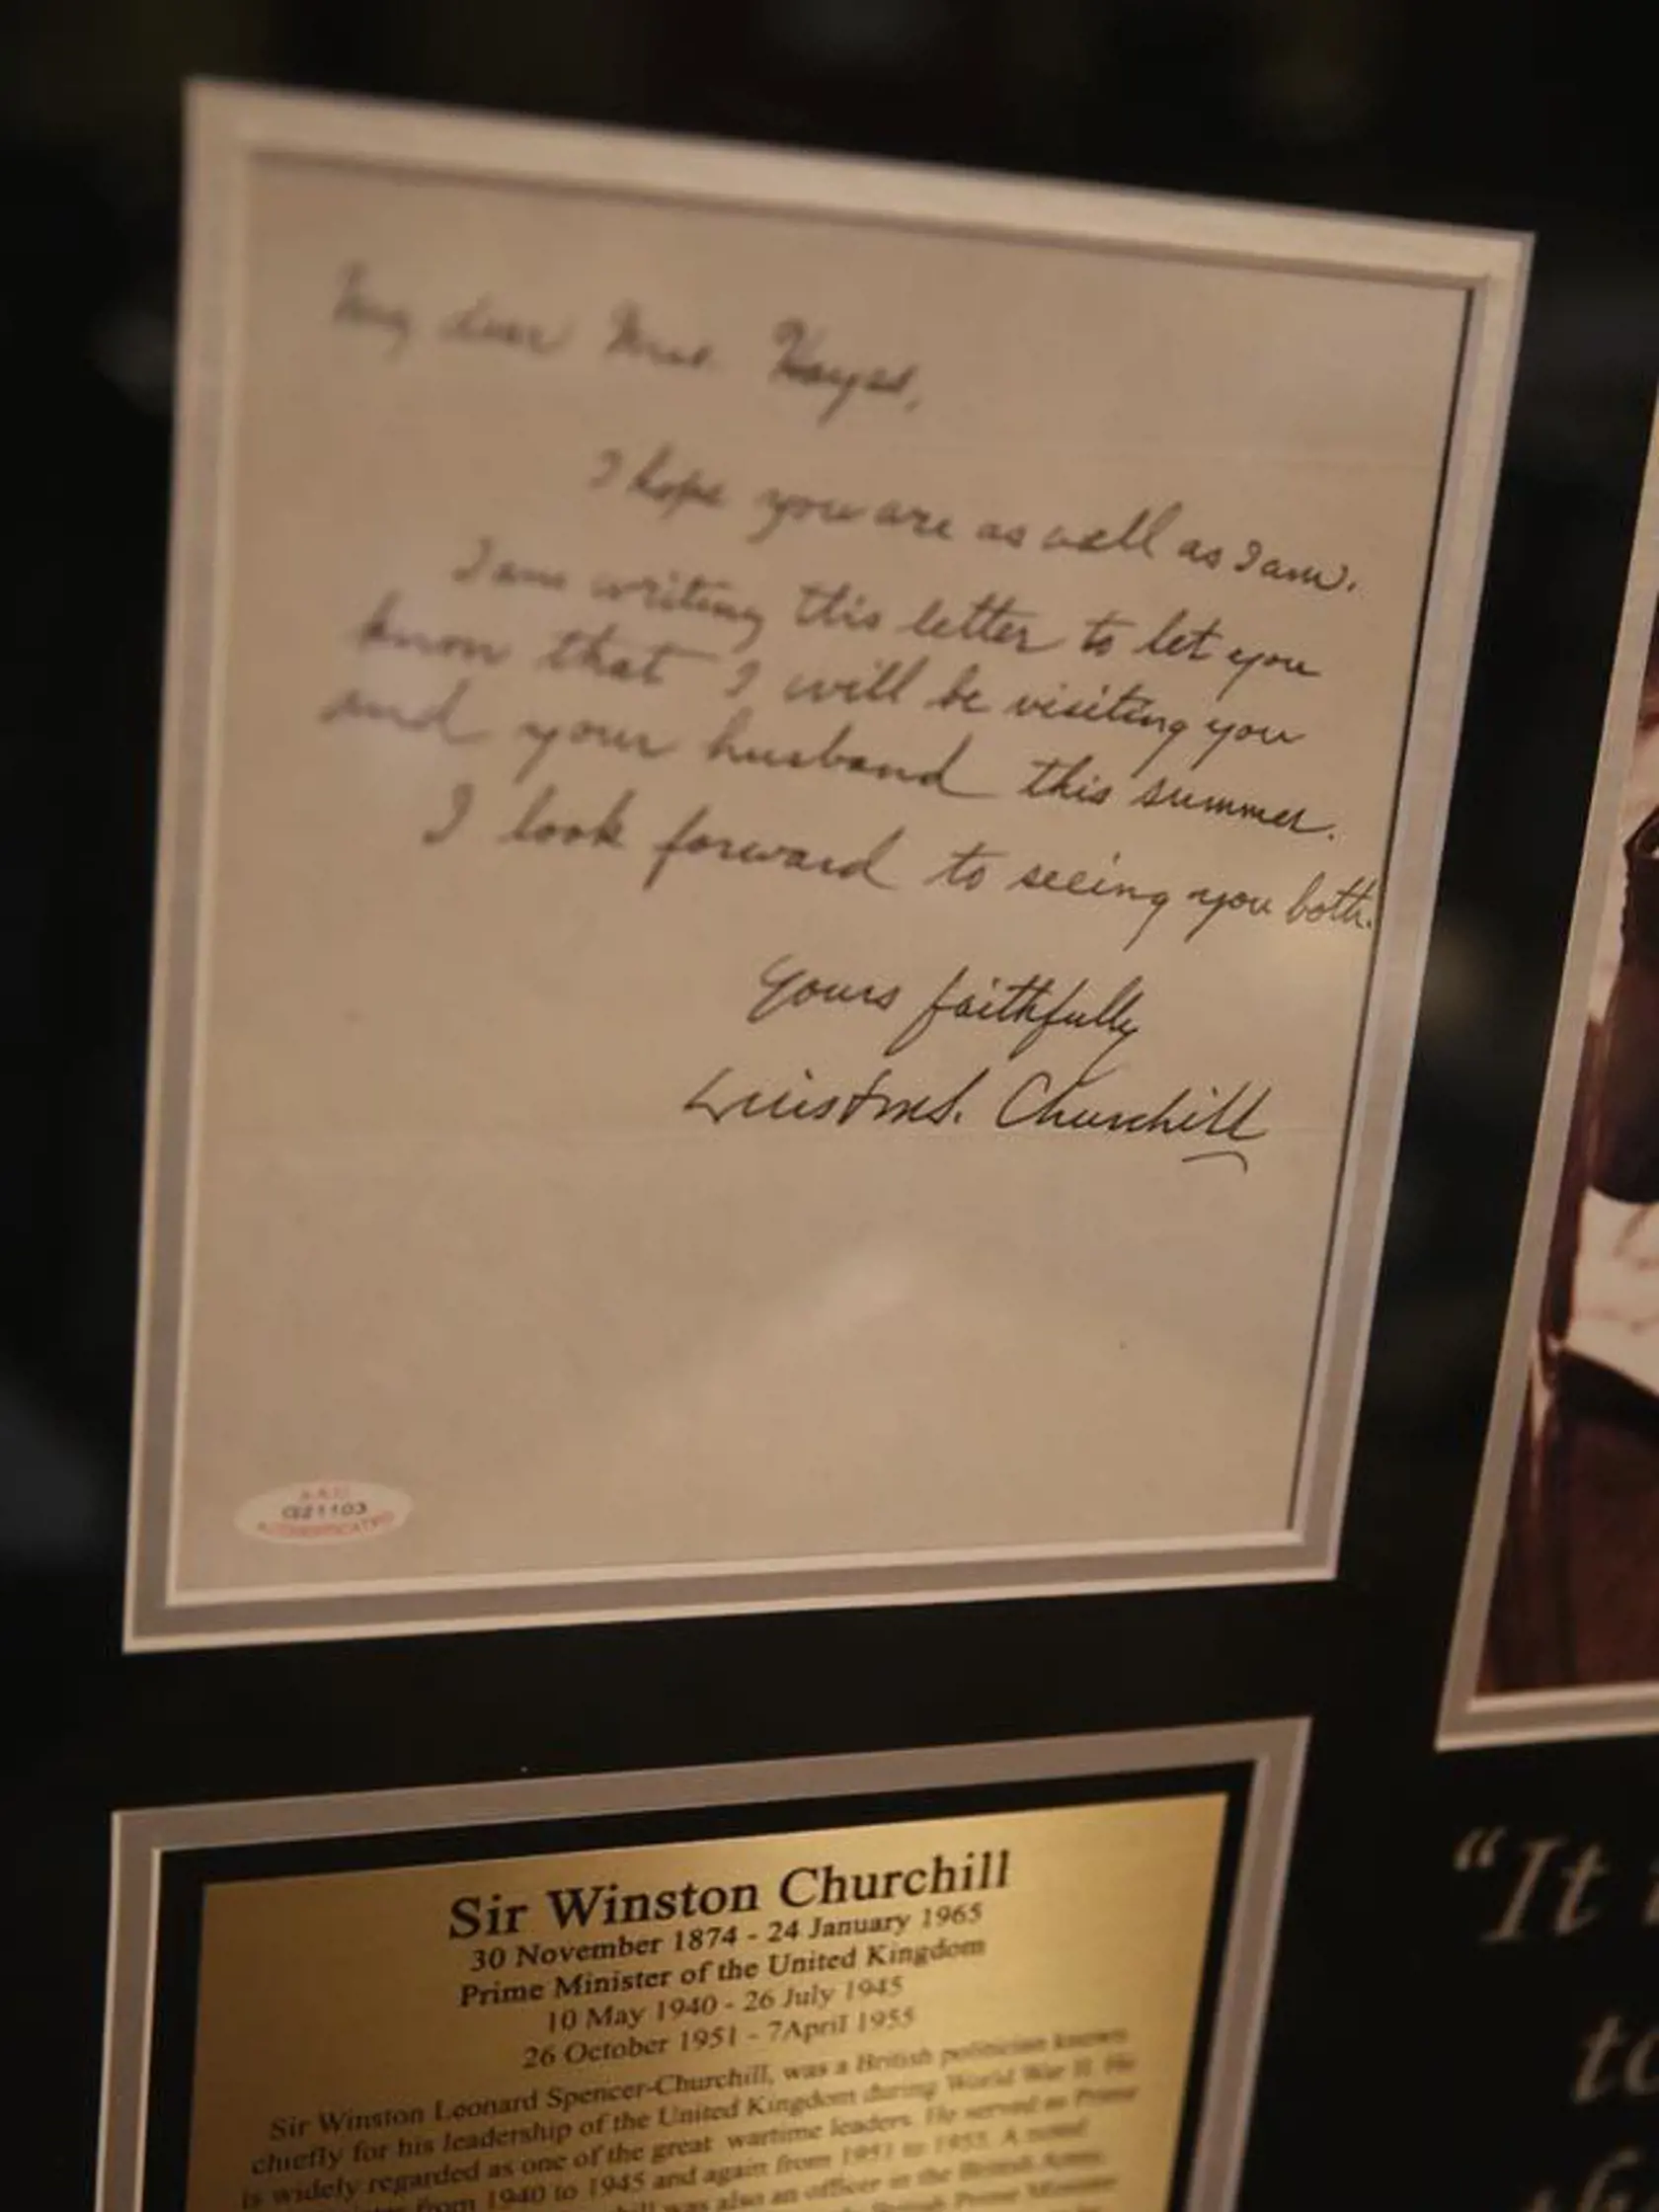 My dear Mrs. Hayes,
I hope you are as well as I am.
I am writing this letter to let you
know that I will be visiting you
and your husband this summer.
I look forward to seeing you both.
Yours faithfully
Winston S. Churchill
G21103
AUTHENTICATED
Sir Winston Churchill
30 November 1874 - 24 January 1965
Prime Minister of the United Kingdom
10 May 1940 - 26 July 1945
26 October 1951 - 7April 1955
Sir Winston Leonard Spencer-Churchill, was a British politician known
chiefly for his leadership of the United Kingdom during World War II. He
is widely regarded as one of the great wartime leaders. He served as Prime
from 1940 to 1945 and again from 1951 to 1955. A noted
was also an officer in the British Army,
British Prime Minister
"It
to